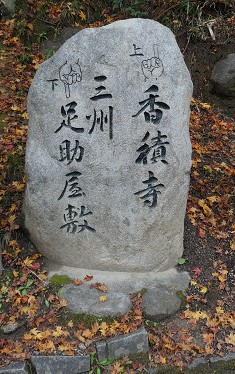 上
香積寺
三州
足助屋敷
下